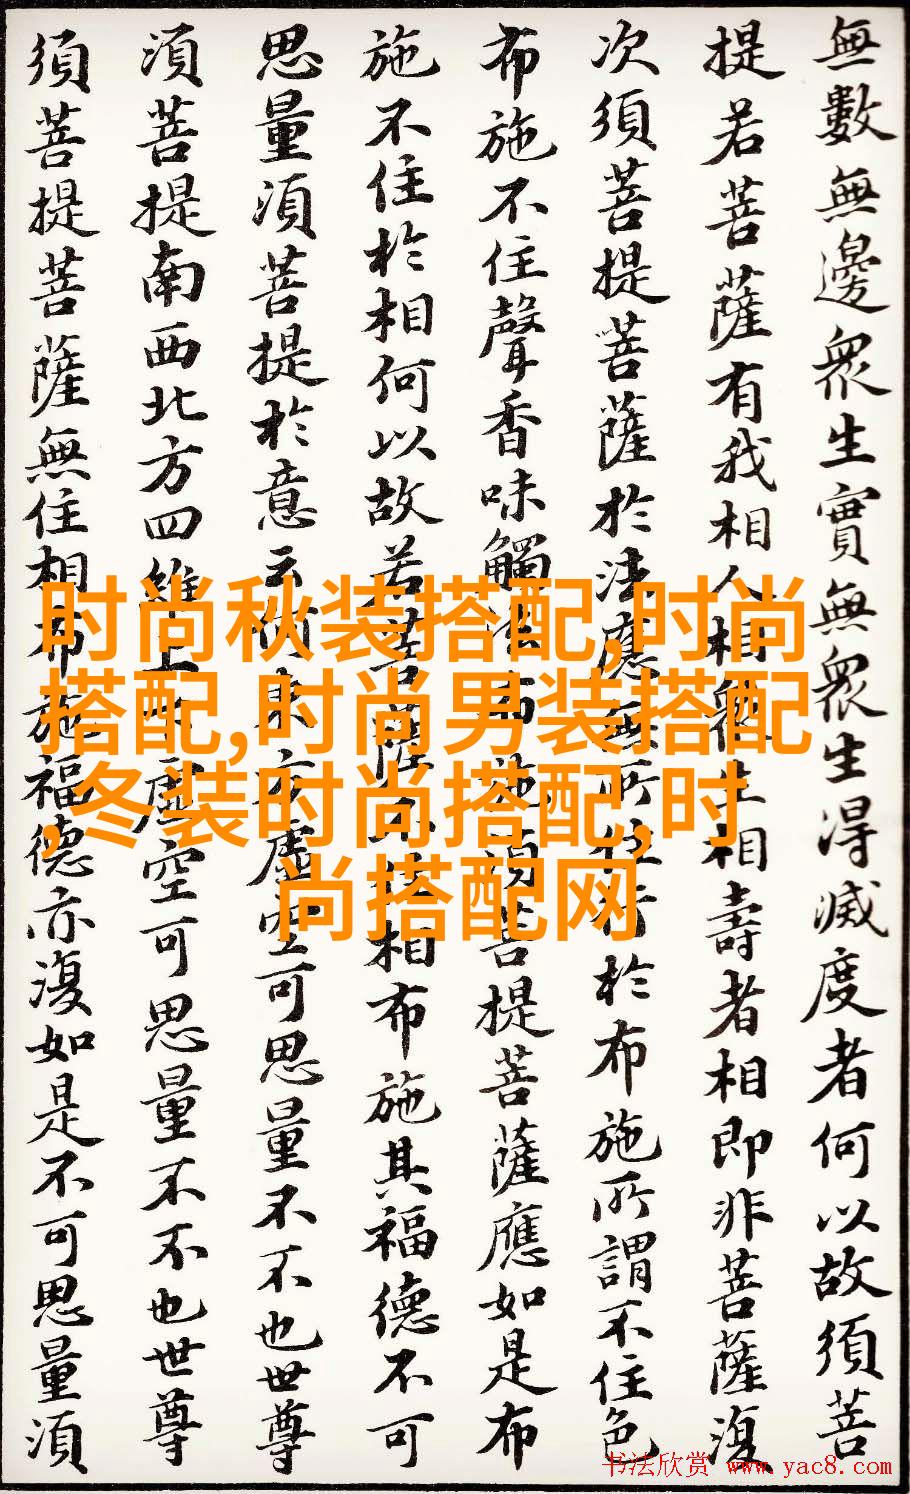 無數無邊衆生實無衆生得滅度者何以故須菩
提若菩薩有我相人相衆生相壽者相即非菩薩復
次須菩提菩薩於法應無所住行於布施所謂不住色
布施不住聲香味觸法布施須菩提菩薩應如是布
施不住於相何以故若菩薩不住相布施其福德不可
思量須菩提於意云何東方虛空可思量不不也世尊
須菩提南西北方四維上下虛空可思量不不也世尊
須菩提菩薩無住相布施福德亦復如是不可思量須
时尚秋装搭配,时尚
搭配,时尚男装搭配
,冬装时尚搭配,时
尚搭配网
书法欣赏 www.yac8.com